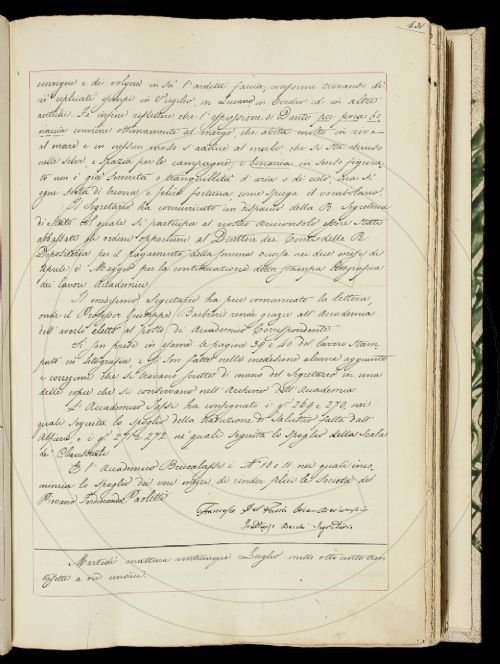 emergere e di volgere in su l'ardita faccia, conforme trovansi di
ciò replicati esempi in Virgilio, in Lucano in Ovidio ed in altri
antichi. Fa infine riflettere che l'espressione di Dante per poca bo
naccia conviene ottimamente al mergo, che abita molto in riva
al mare e in nessun modo s'addice al merlo che si sta chiuso
nelle selve, e spazia per le campagne; e bonaccia in senso figura
to non è già serenità o tranquillità d'aria o di cielo, ma si
ogni sorta di buona, e felice fortuna come spiega il vocabolario.
Il Segretario ha comunicato un dispaccio della R. Segreteria
di Stato col quale si partecipa al nostro Arciconsolo essere stati
abbassati gli ordini opportuni al Direttore dei Conti della R.
Depositeria per il pagamento della somma occorsa nei due mesi di
Aprile, e Maggio per la continuazione della stampa litografica
dei lavori Accademici.
Il medesimo Segretario ha pure comunicata la lettera,
onde il Professor Giuseppe Barbieri rende grazie all'Accademia
dell'averlo eletto al posto di Accademico Corrispondente.
E son prese in esame le pagine 39 e 40 del lavoro stam
pato in litografia e son fatte nelle medesime alcune aggiunte
e correzioni che si trovano scritte di mano del Segretario in una
delle copie che si conservano nell'Archivio dell'Accademia.
L'Accademico ha consegnato i q.i 269 e 270, nei
quali seguita lo spoglio della traduzione di Salustio fatta dall'
Alfieri, e i q.i 271 e 272 ne' quali seguita lo spoglio della Scala
de' Claustrali.
E l'Accademico Brucalassi i N.i 10 e 11 nei quali inco
mincia lo spoglio dei veri mezzi di render felici le Società del
Pievano Ferdinando Paoletti.
Francesco Del Arciconsolo
Fruttuoso Becchi Segretario
Martedì mattina venticinque Luglio mille otto cento tren
tasette a ore undici.